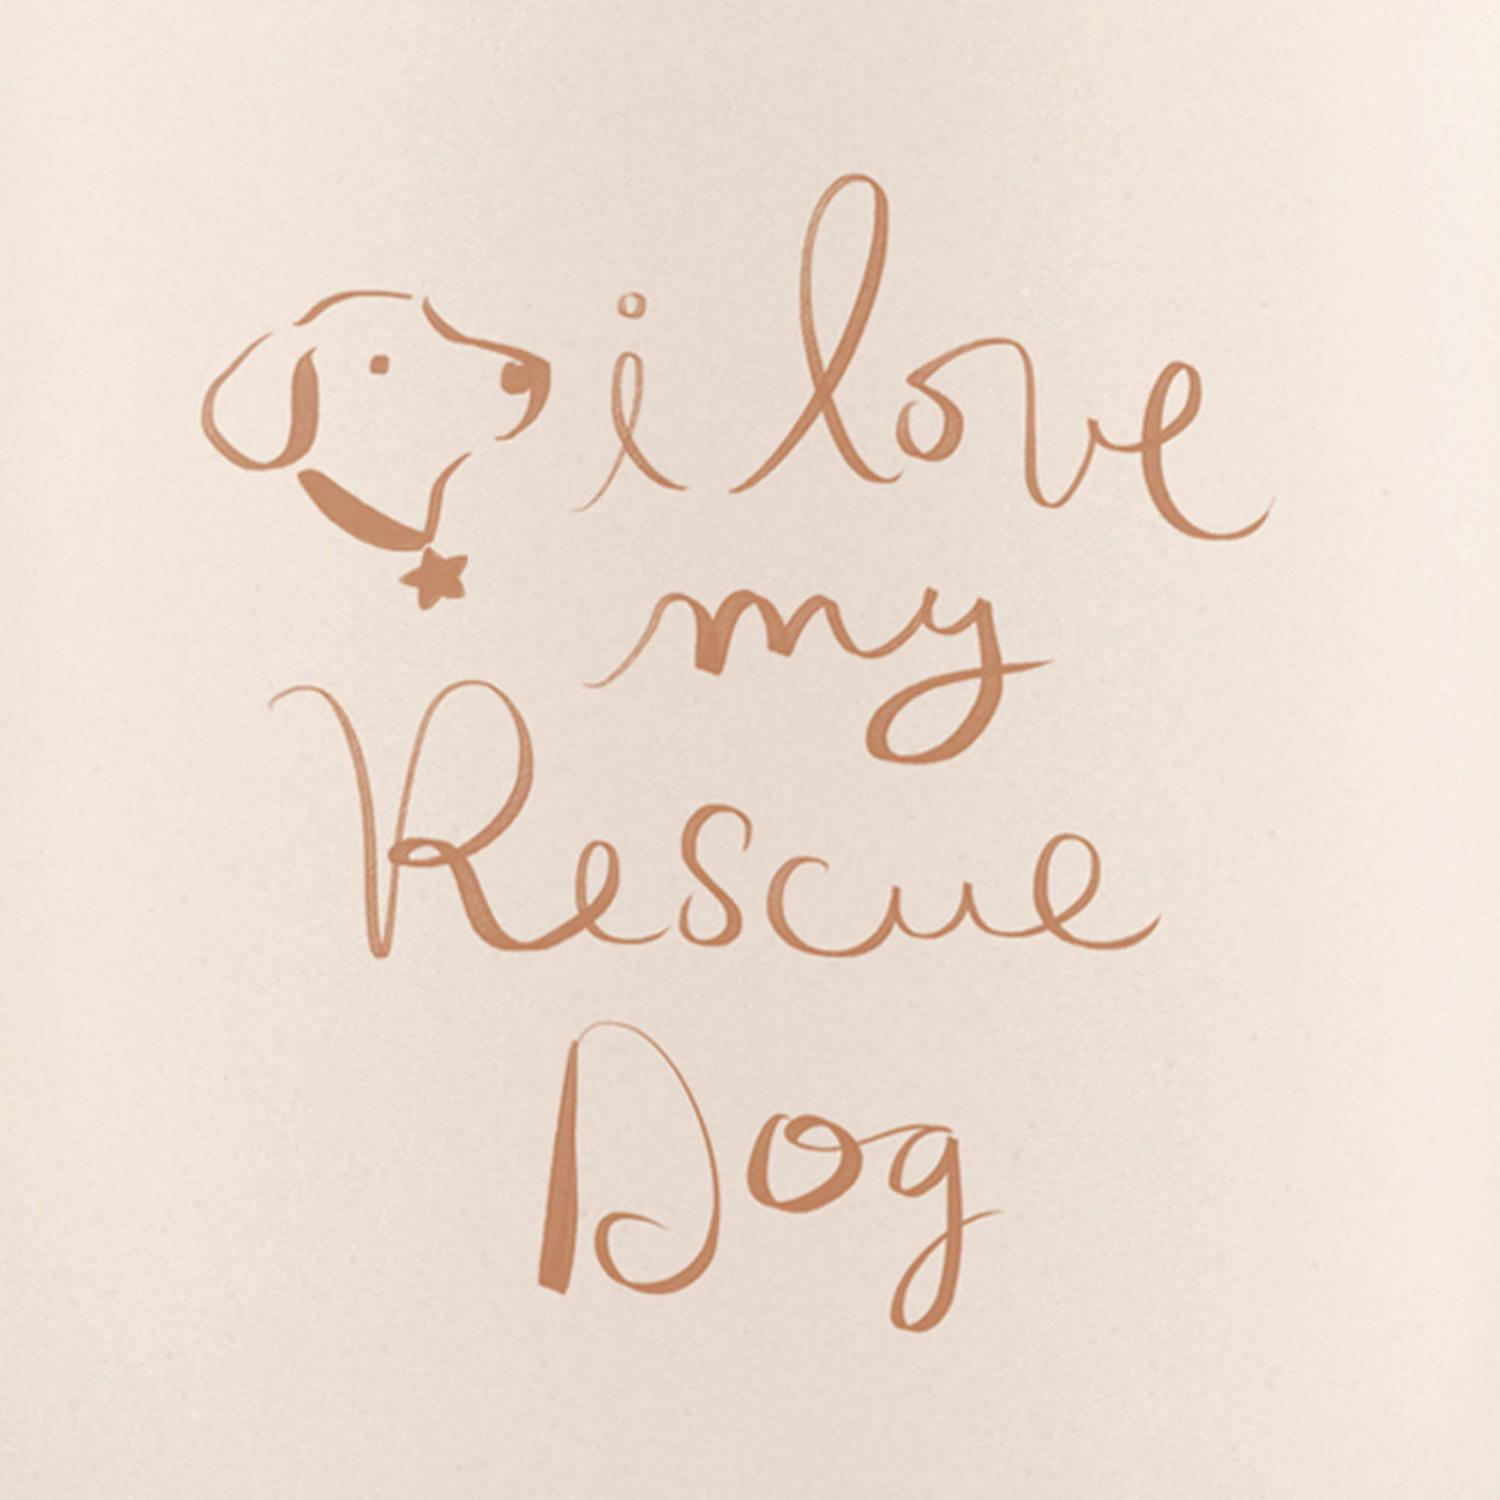 i love
my
Rescue
Dog